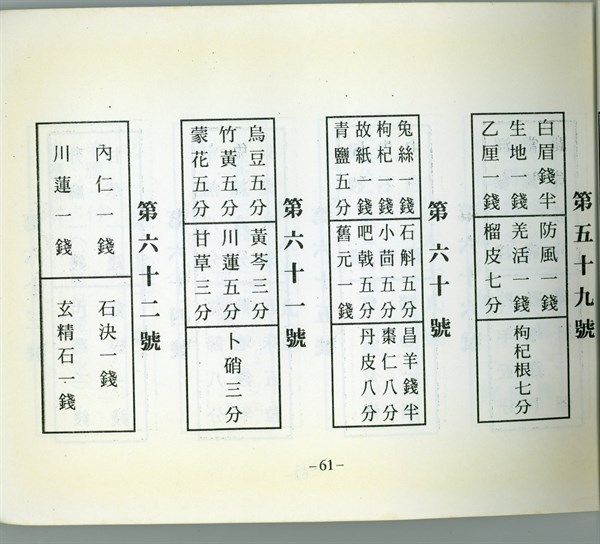 第五十九號
白眉錢半
生地一錢
乙厘一錢
防風一錢
羌活一錢
榴皮七分
枸杞根七分
第六十號
兔絲一錢
枸杞一錢
故紙一錢
青鹽五分
石斛五分
小茴五分
吧戟五分
舊元一錢
昌羊錢半
棗仁八分
丹皮八分
第六十一號
烏豆五分
竹黃五分
蒙花五分
黃芩三分
川蓮五分
甘草三分
卜硝三分
第六十二號
內仁一錢
川蓮一錢
石決一錢
玄精石一錢
–61–